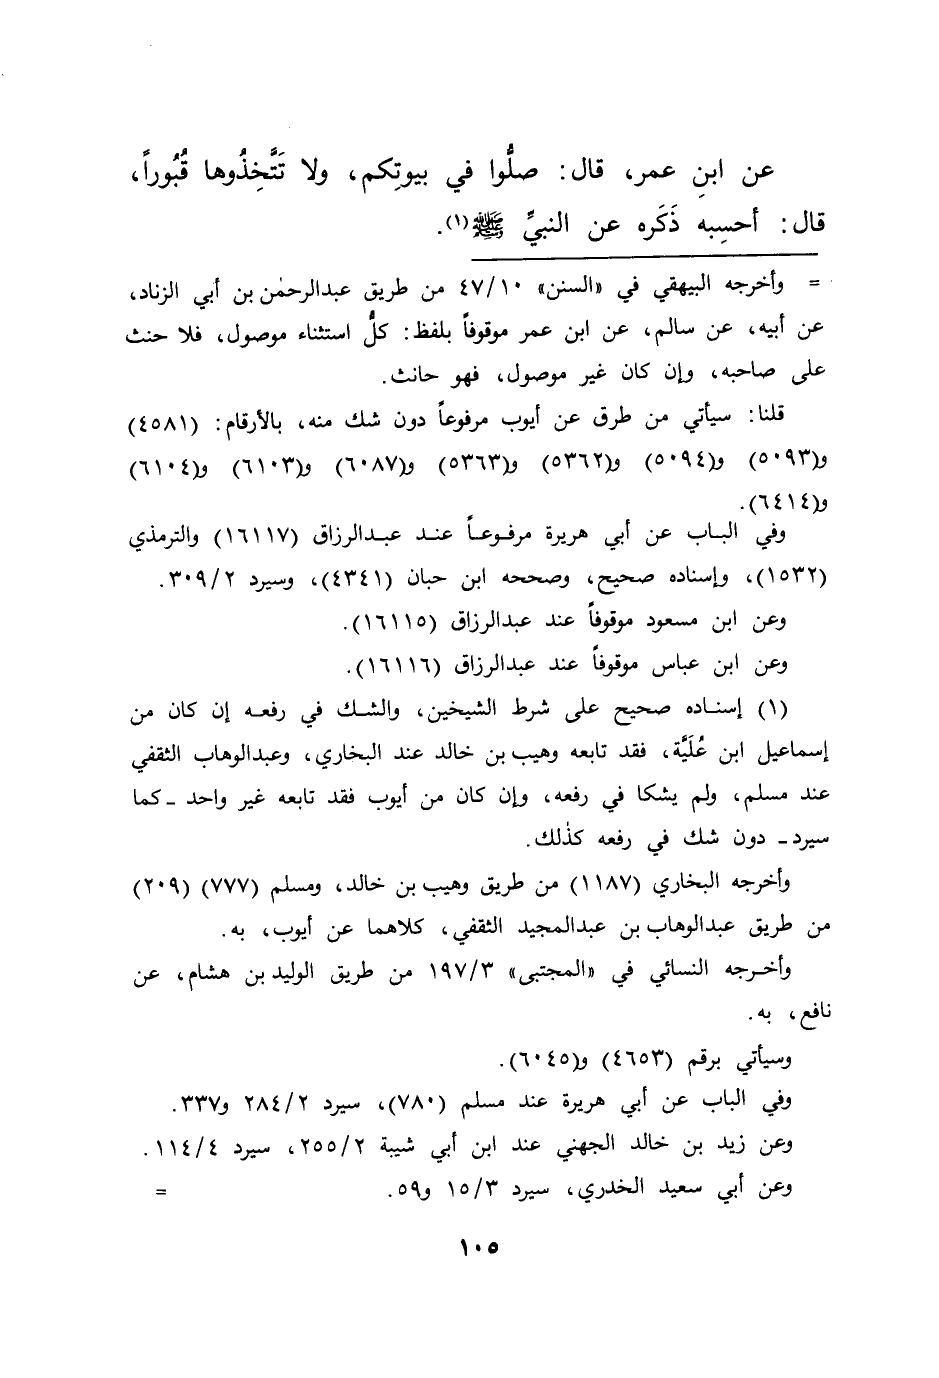 عن ابنِ عمر، قال: صلُّوا في بيوتِكم، ولا تَتَّخِذُوها قُبُوراً،
قال: أحسِبه ذَكَره عن النبيِّ ﷺ(١).
= وأخرجه البيهقي في «السنن» ٤٧/١٠ من طريق عبدالرحمٰن بن أبي الزناد،
عن أبيه، عن سالم، عن ابن عمر موقوفاً بلفظ: كلُّ استثناء موصول، فلا حنث
على صاحبه، وإن كان غير موصول، فهو حانث.
قلنا: سيأتي من طرق عن أيوب مرفوعاً دون شك منه، بالأرقام: (٤٥٨١)
و(٥٠٩٣) و(٥٠٩٤) و(٥٣٦٢) و(٥٣٦٣) و(٦٠٨٧) و(٦١٠٣) و(٦١٠٤)
و(٦٤١٤).
وفي الباب عن أبي هريرة مرفوعاً عند عبدالرزاق (١٦١١٧) والترمذي
(١٥٣٢)، وإسناده صحيح، وصححه ابن حبان (٤٣٤١)، وسيرد ٣٠٩/٢.
وعن ابن مسعود موقوفاً عند عبدالرزاق (١٦١١٥).
وعن ابن عباس موقوفاً عند عبدالرزاق (١٦١١٦).
(١) إسناده صحيح على شرط الشيخين، والشك في رفعه إن كان من
إسماعيل ابن عُلَيَّة، فقد تابعه وهيب بن خالد عند البخاري، وعبدالوهاب الثقفي
عند مسلم، ولم يشكا في رفعه، وإن كان من أيوب فقد تابعه غير واحد ـ كما
سيرد ـ دون شك في رفعه كذٰلك.
وأخرجه البخاري (١١٨٧) من طريق وهيب بن خالد، ومسلم (٧٧٧) (٢٠٩)
من طريق عبدالوهاب بن عبدالمجيد الثقفي، كلاهما عن أيوب، به.
وأخرجه النسائي في «المجتبى» ١٩٧/٣ من طريق الوليد بن هشام، عن
نافع، به.
وسيأتي برقم (٤٦٥٣) و(٦٠٤٥).
وفي الباب عن أبي هريرة عند مسلم (٧٨٠)، سيرد ٢٨٤/٢ و٣٣٧.
وعن زيد بن خالد الجهني عند ابن أبي شيبة ٢٥٥/٢، سيرد ١١٤/٤.
وعن أبي سعيد الخدري، سيرد ١٥/٣ و٥٩. =
١٠٥